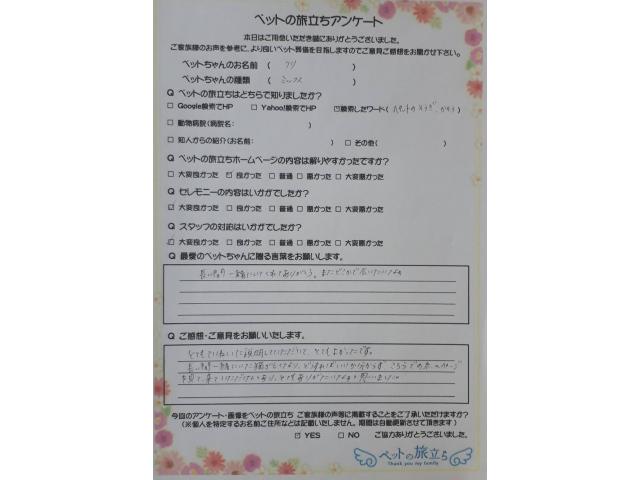 ペットの旅立ちアンケート
本日はご用命いただき誠にありがとうございました。
ご家族様のお声を参考に、より良いペット葬儀を目指しますのでご意見ご感想をお聞かせ下さい。
ペットちゃんのお名前 ( クリ )
ペットちゃんの種類 ( ミックス )
Q ペットの旅立ちはどちらで知りましたか?
□ Google検索でHP □ Yahoo!検索でHP ☑検索したワード( ペットの そうぎ、かそう )
□ 動物病院(病院名: )
□ 知人からの紹介(お名前: ) □ その他( )
Q ペットの旅立ちホームページの内容は解りやすかったですか?
□ 大変良かった ☑ 良かった □ 普通 □ 悪かった □ 大変悪かった
Q セレモニーの内容はいかがでしたか?
☑ 大変良かった □ 良かった □ 普通 □ 悪かった □ 大変悪かった
Q スタッフの対応はいかがでしたか?
☑ 大変良かった □ 良かった □ 普通 □ 悪かった □ 大変悪かった
Q 最愛のペットちゃんに贈る言葉をお願いします。
長い間 一緒にいてくれてありがとう。またどこかで会いたいな
Q ご感想・ご意見をお願いいたします。
とてもていねいに説明していただいて、とてもよかったです。
長い間一緒にいた猫が どうすればいいか分からず こちらのホームページ
を見て 来ていただけて とてもありがたいなぁと思いました
今回のアンケート・画像をペットの旅立ち ご家族様の声等に掲載することをご了承いただけますか?
(※個人を特定するお名前ご住所などは記載いたしません。期間は自動更新させて頂きます)
☑ YES □ NO ご協力ありがとうございました。
ペットの旅立ち
Thank you my family